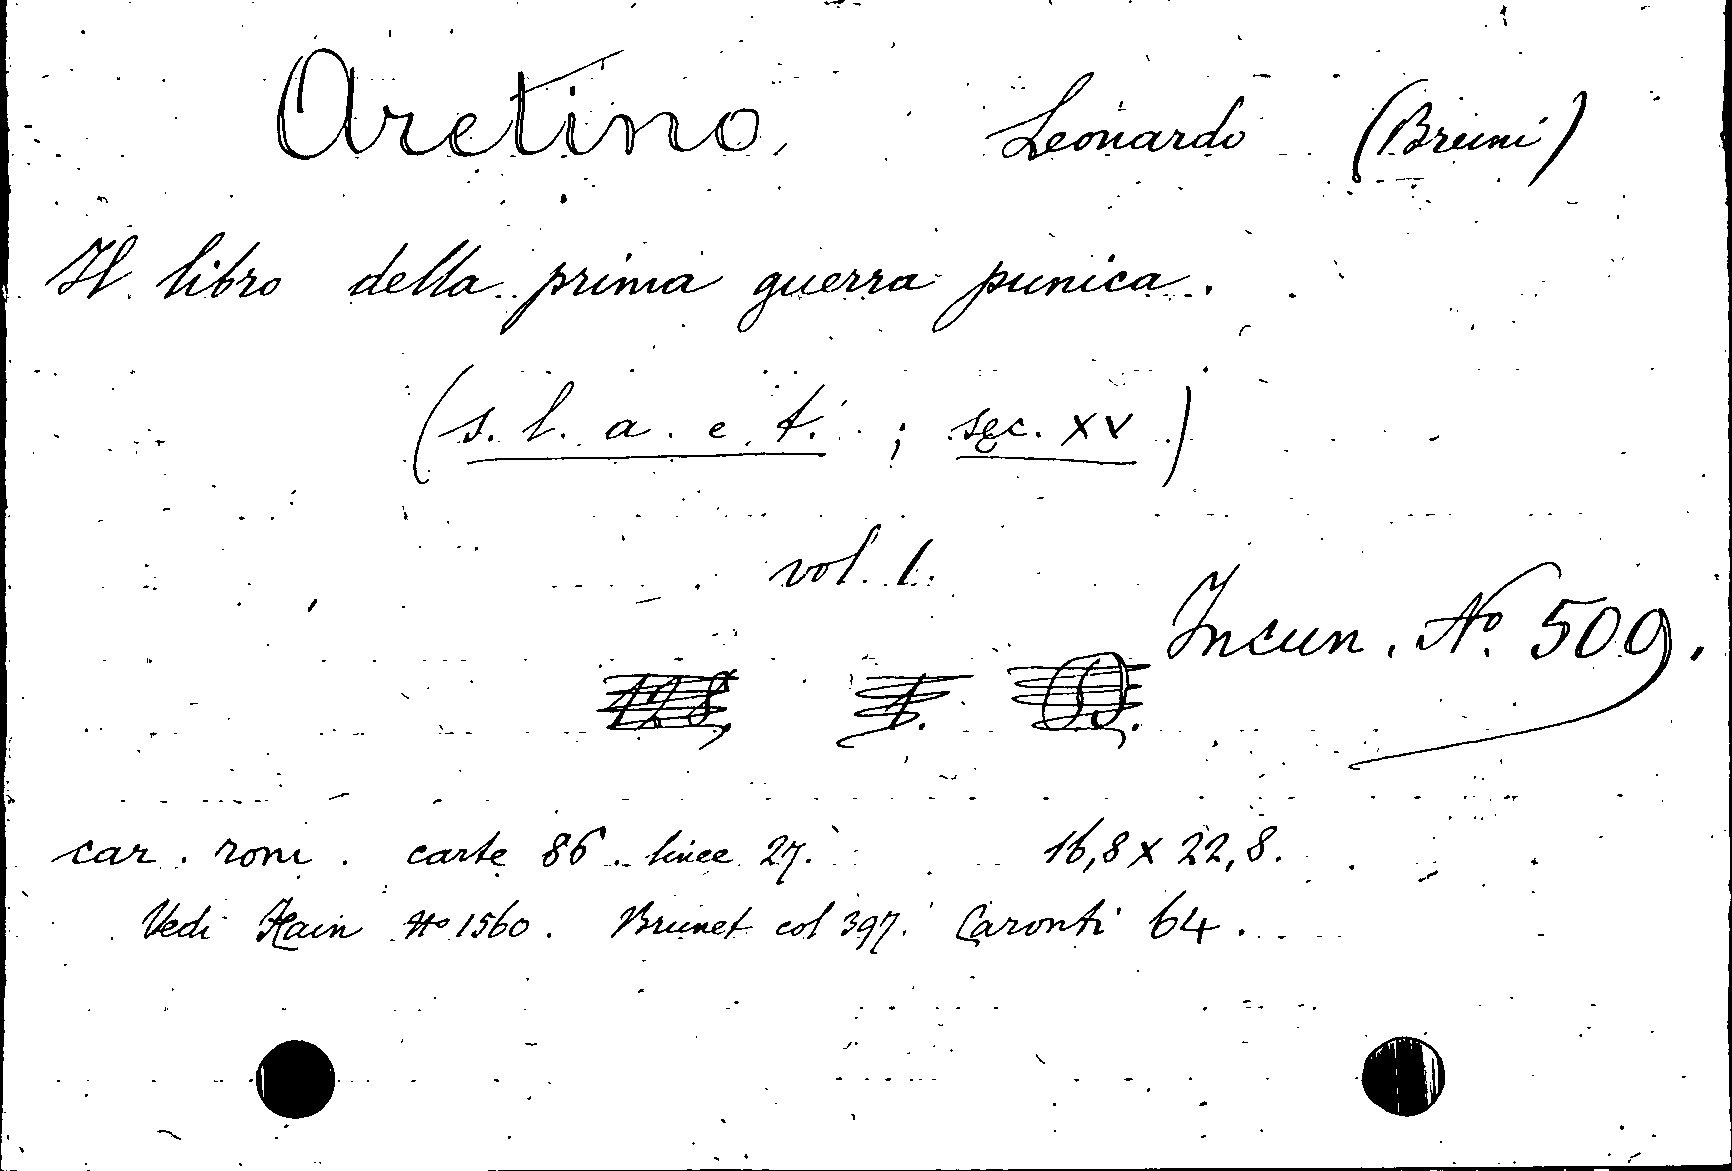 Aretino, Leonardo (Bruni)
Il libro della prima guerra punica.
(s. l. a. e t. ; sec. XV)
vol. 1.
Incun. No. 509.
car. rom. carte 86. linee 27. 16,8 x 22,8.
Vedi Hain No 1560. Brunet col 397. Caronti 64.